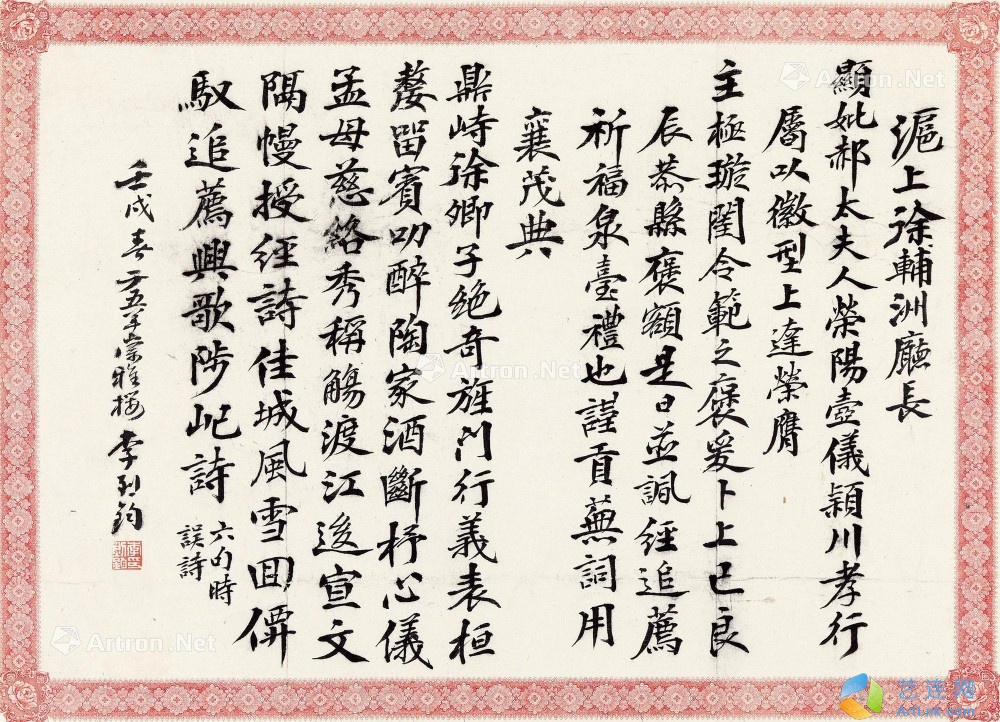 滬上徐輔洲廳長
顯妣郝太夫人榮陽壼儀頴川孝行
屬以徽型上達榮膺
主極璇閨令範之褒爰卜上巳良
辰恭縣褒額是日並諷經追薦
祈福泉臺禮也謹貢蕪詞用
襄茂典
鼎峙徐卿子絶奇旌門行義表桓
嫠留賓叨醉陶家酒斷杼心儀
孟母慈絡秀稱觴渡江逡宣文
隔幔授經詩佳城風雪回僝
馭追薦興歌陟屺詩
六句時
誤詩
壬戌春 李烈鈞
Artron.Net
Artron.Net
Artron.Net
Artron.Net
Artron.Net
艺连网
ArtLnk.com